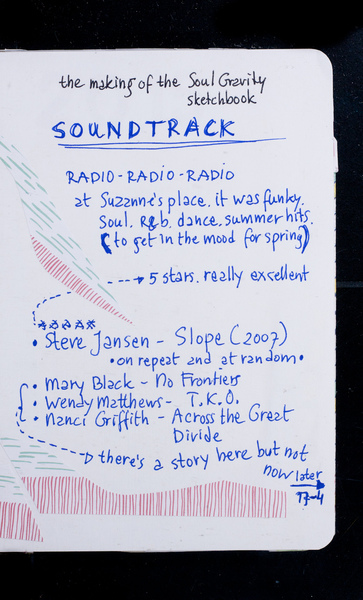 the making of the Soul Gravity
sketchbook
SOUNDTRACK
RADIO-RADIO-RADIO
at Suzanne's place. it was funky.
Soul. R&b. dance. summer hits.
(to get in the mood for spring)
5 stars. really excellent
• Steve Jansen - Slope (2007)
• on repeat and at random •
• Mary Black - No Frontiers
• Wendy Matthews - T.K.O.
• Nanci Griffith - Across the Great
Divide
there's a story here but not
now later